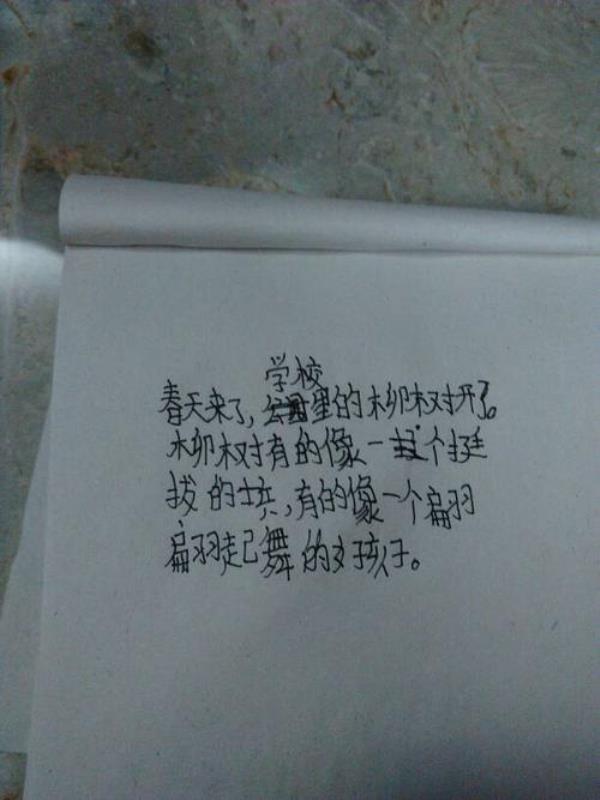 学校
春天来了,里的柳树开了。
柳树有的像一个挺
拔的士兵,有的像一个翩
翩起舞的女孩子。